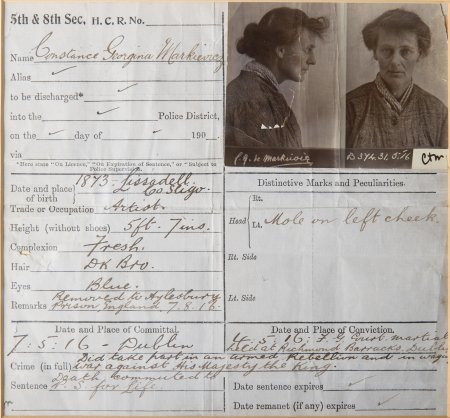 5th & 8th Sec, H.C.R. No.
Name Constance Georgina Markievicz
Alias
to be discharged*
into the Police District,
on the day of 190
via
*Here state "On Licence," "On Expiration of Sentence," or "Subject to Police Supervision."
Date and place of birth 1873- Lissadell. Co Sligo.
Trade or Occupation Artist.
Height (without shoes) 5ft. 7ins.
Complexion Fresh.
Hair Dk Bro.
Eyes Blue.
Remarks Removed to Aylesbury Prison England 7.8.16.
C.G. de Markievicz
Distinctive Marks and Peculiarities.
Head
Rt.
Lt. Mole on left cheek.
Rt. Side
Lt. Side
Date and Place of Committal.
7.5.16 - Dublin
Date and Place of Conviction.
4.5.16: F.G. Court martial
held at Richmond Barracks, Dublin
Crime (in full) Did take part in an armed Rebellion and in waging
war against His Majesty the King:
Sentence Death commuted to
P.S for Life.
Date sentence expires
Date remanet (if any) expires